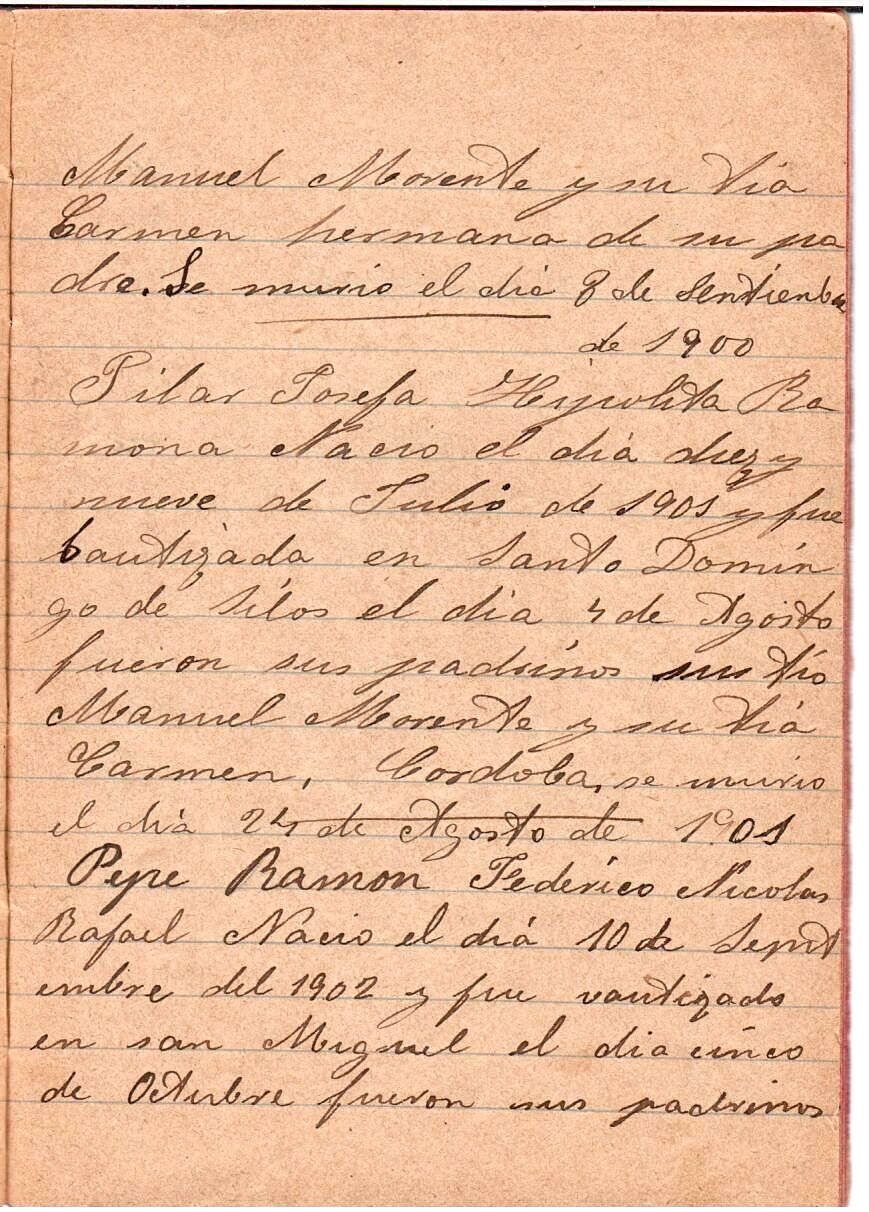 Manuel Morente y su tia
Carmen hermana de su pa
dre. Se murio el dia 8 de Sentienbre
de 1900
Pilar Josefa Hipolita Ra
mona Nacio el dia diez y
nueve de Julio de 1901 y fue
bautizada en Santo Domin
go de Silos el dia 4 de Agosto
fueron sus padrinos su tio
Manuel Morente y su tia
Carmen, Cordoba, se murio
el dia 24 de Agosto de 1901
Pepe Ramon Federico Nicolas
Rafael Nacio el dia 10 de Sept
embre del 1902 y fue vautizado
en san Miguel el dia cinco
de Octubre fueron sus padrinos